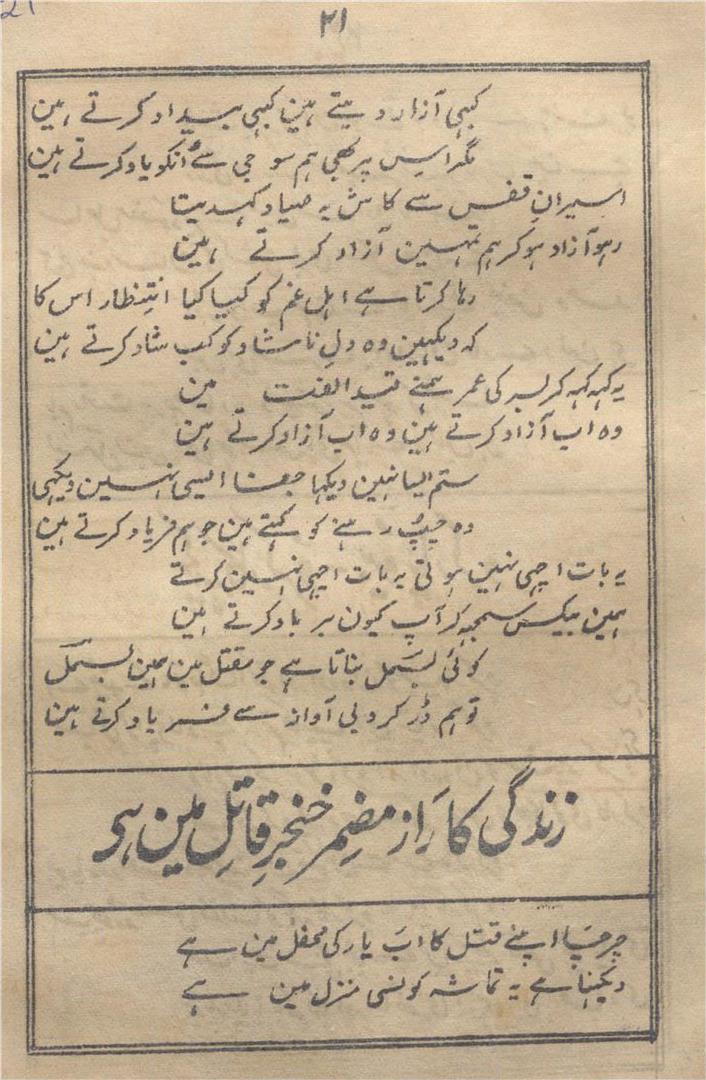 21
۲۱
کبہی آزار دیتے ہین کبہی بیداد کرتے ہین
مگر اس پر بھی ہم سو جی سے اُنکو یاد کرتے ہین
اسیرانِ قفس سے کاش یہ صیاد کہدیتا
رہو آزاد ہوکر ہم تمہین آزاد کرتے ہین
رہا کرتا ہے اہل غم کو کیا کیا انتظار اس کا
کہ دیکہین وہ دلِ ناشاد کو کب شاد کرتے ہین
یہ کہہ کہہ کر بسر کی عمر ہمنے قید الفت مین
وہ اب آزاد کرتے ہین وہ اب آزاد کرتے ہین
ستم ایسا نہین دیکہا جفا ایسی نہین دیکہی
وہ چپُ رہنے کو کہتے ہین جو ہم فریاد کرتے ہین
یہ بات اچہی نہین ہوتی یہ بات اچہی نہین کرتے
ہمین بیکس سمجہ کر آپ کیون برباد کرتے ہین
کوئی بسمل بناتا ہے جو مقتل مین ہمین بسمل
تو ہم ڈر کر دبی آواز سے فریاد کرتے ہین
زندگی کا راز مضمر خنجرِ قاتل مین ہی
چرچا اپنے قتل کا اب یار کی محفل مین ہے
دیکہنا ہے یہ تماشہ کونسی منزل مین ہے